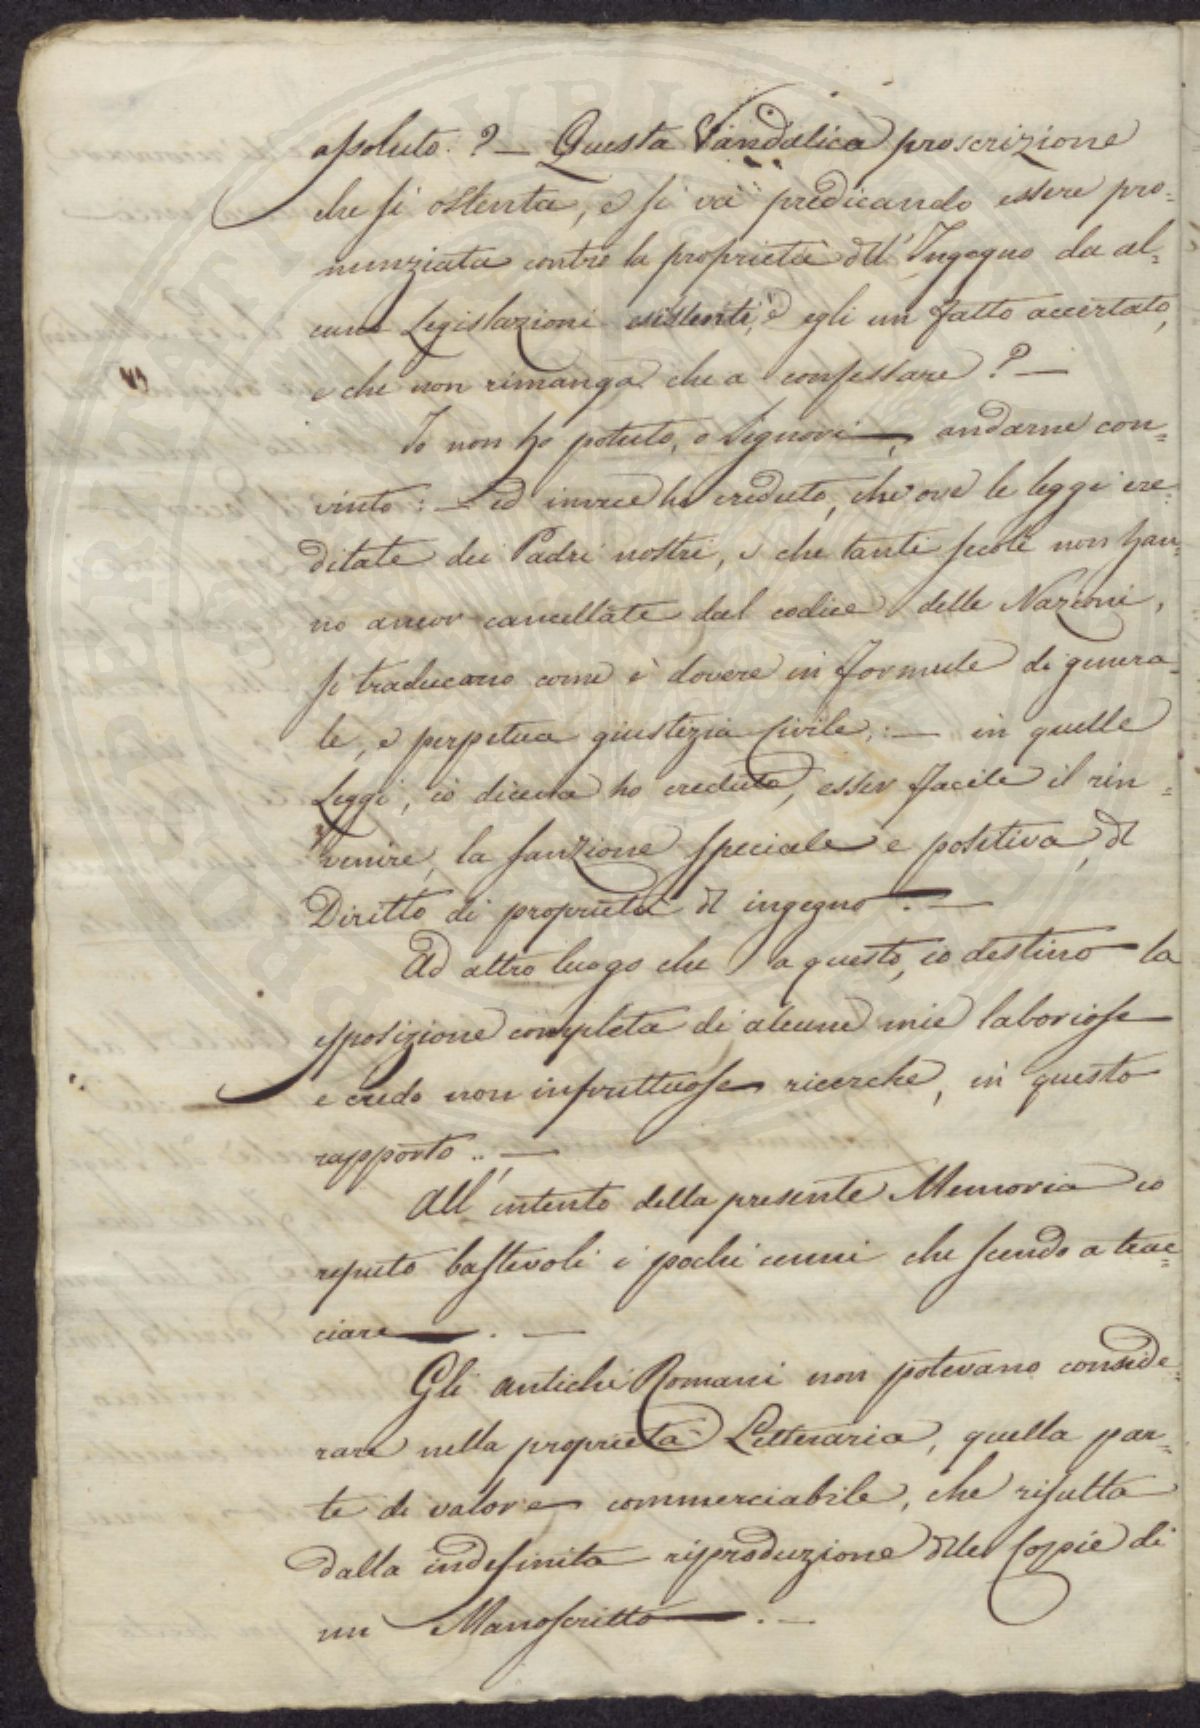 assoluto. ? — Questa Vandalica proscrizione
che si ostenta, e si va predicando essere pro=
nunziata contro la proprietà dell'Ingegno da al=
cune Legislazioni esistenti, è egli un fatto accertato,
e che non rimanga che a confessare ? —
Io non ho potuto, o Signori, andarne con=
vinto : — ed invece ho creduto, che ove le leggi ere=
ditate dei Padri nostri, e che tanti secoli non han=
no ancor cancellate dal codice delle Nazioni,
si traducano come è dovere in formule di genera=
le, e perpetua giustizia Civile ; — in quelle
Leggi, io diceva ho creduto, esser facile il rin=
venire, la sanzione speciale e positiva, del
Diritto di proprietà del ingegno. —
Ad altro luogo che a questo, io destino la
esposizione completa di alcune mie laboriose
e credo non infruttuose ricerche, in questo
rapporto .. —
All'intento della presente Memoria io
reputo bastevoli i pochi cenni che scendo a trac=
ciare. —
Gli antichi Romani non potevano conside=
rare nella proprietà Letteraria, quella par=
te di valore commerciabile, che risulta
dalla indefinita riproduzione delle Coppie di
un Manoscritto. —